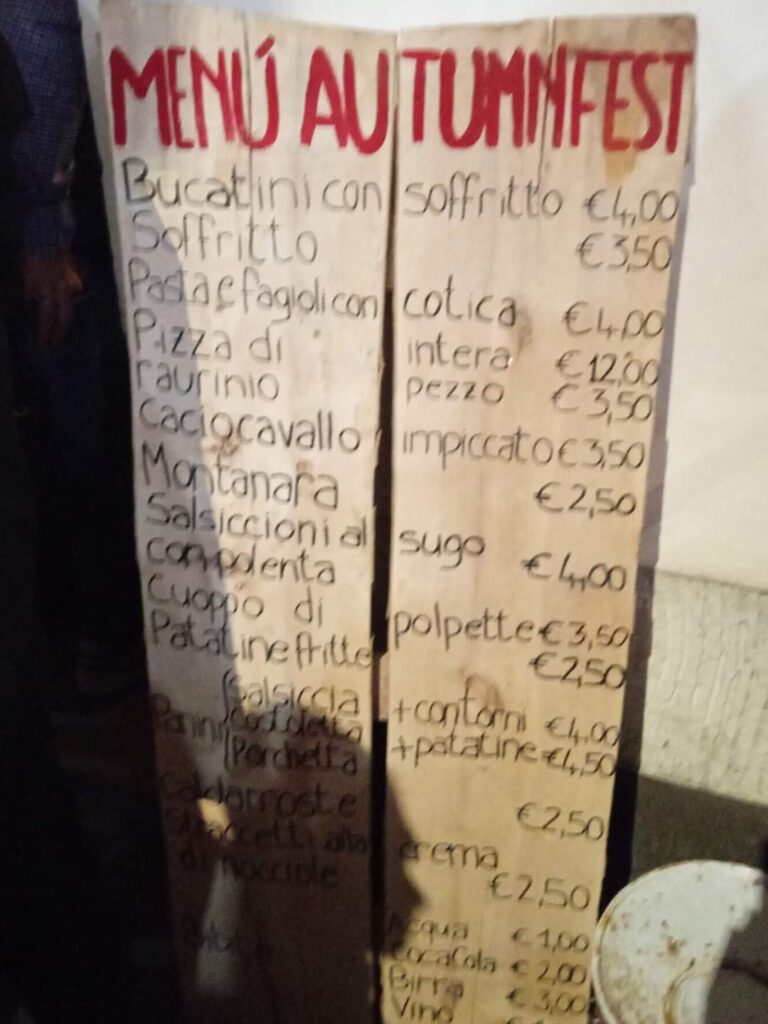 MENÚ AUTUMNFEST
Bucatini con soffritto €4,00
Soffritto €3,50
Pasta e fagioli con cotica €4,00
Pizza di intera €12,00
raurinio pezzo €3,50
Caciocavallo impiccato €3,50
Montanara €2,50
Salsiccioni al sugo
con polenta €4,00
Cuoppo di polpette €3,50
Patatine fritte €2,50
Salsiccia + contorni €4,00
Panini Cotoletta
Porchetta + patatine €4,50
Caldarroste €2,50
Straccetti alla crema
di nocciole €2,50
Acqua €1,00
CocaCola €2,00
Birra €3,00
Vino